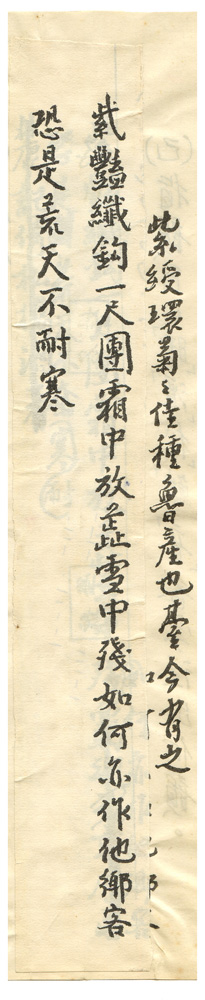 紫綬環菊之佳種魯產也臺今有之
紫豔纖鈎一尺團霜中放蕊雪中殘如何亦作他鄉客
恐是炎天不耐寒